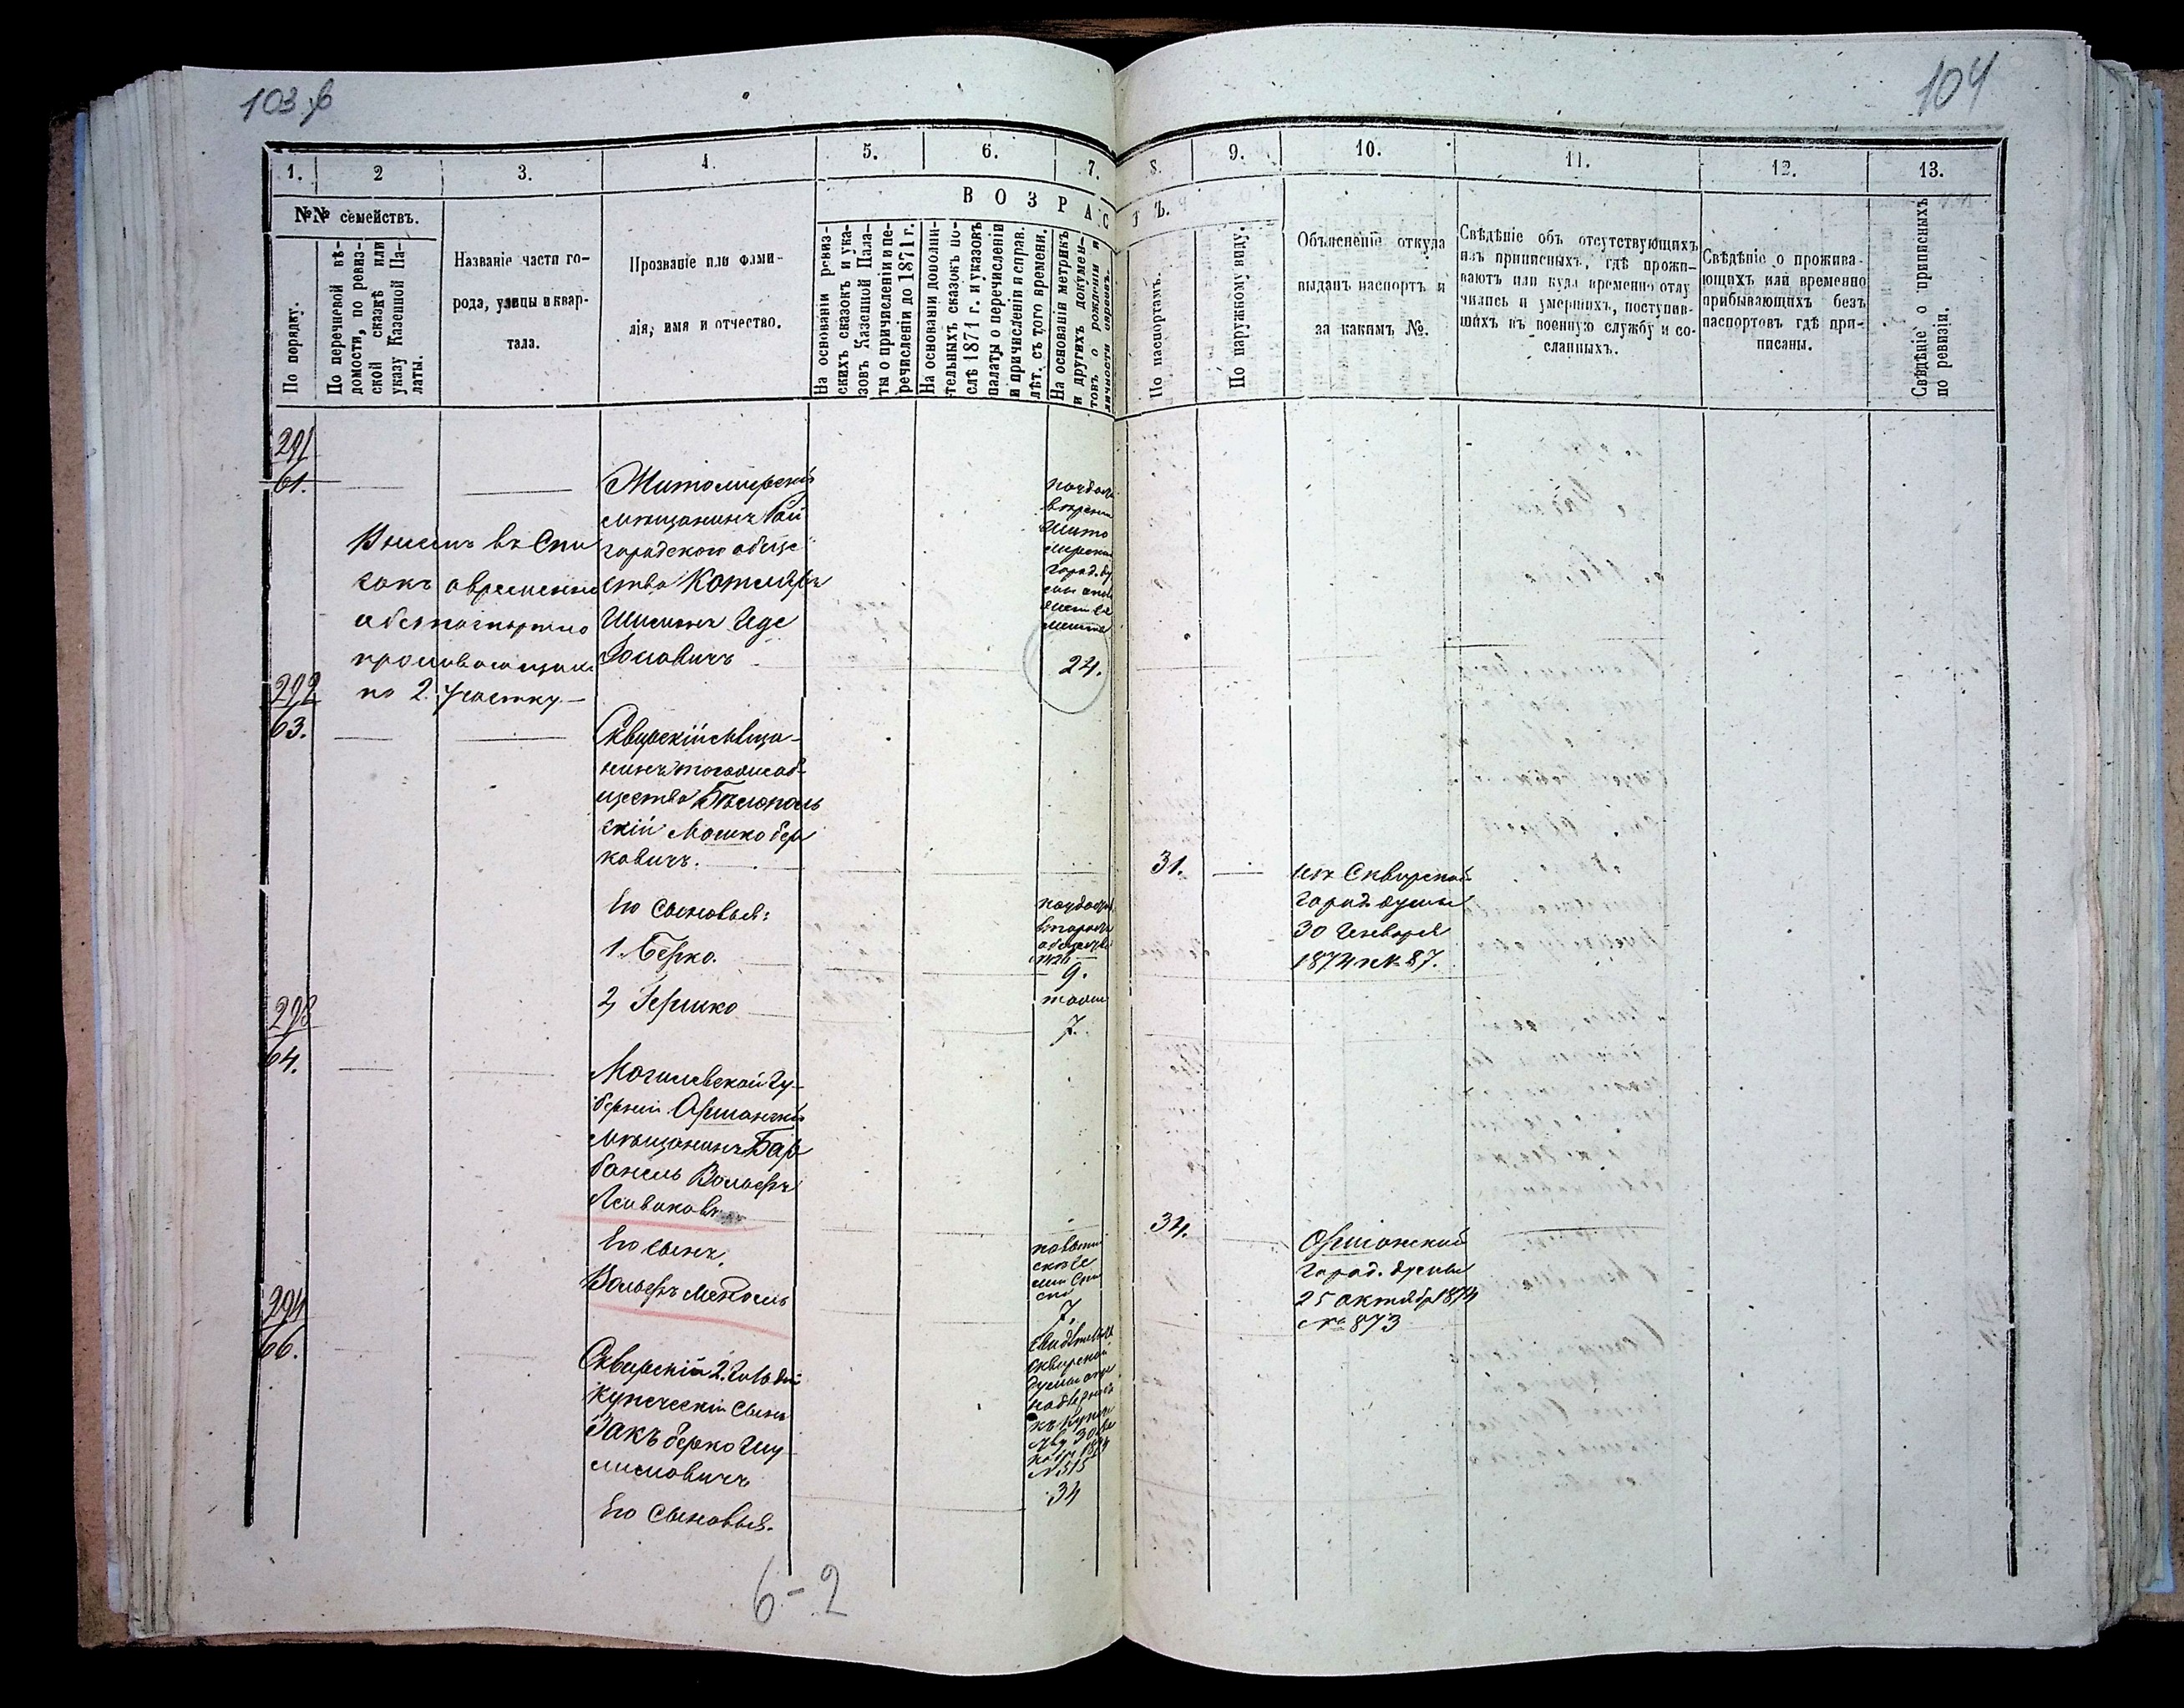 103 б
104
1.
2
3.
4.
5.
6.
7.
8.
9.
10.
11.
12.
13.
№№ семействъ.
По порядку.
По перечневой вѣ-
домости, по ревиз-
ской сказкѣ или
указу Казенной Па-
латы.
Названіе части го-
рода, улицы и квар-
тала.
Прозваніе или фами-
лія, имя и отчество.
ВОЗРАСТЪ.
На основаніи ревиз-
скихъ сказокъ и ука-
зовъ Казенной Пала-
ты о причисленіи и пе-
речисленіи до 1871 г.
На основаніи дополни-
тельныхъ сказокъ по-
слѣ 1871 г. и указовъ
палаты о перечисленіи
и причисленіи и справ.
лѣт. съ того времени.
На основаніи метрикъ
и другихъ докумен-
товъ о рожденіи и
личности евреевъ.
По паспортамъ.
По наружному виду.
Объясненіе откуда
выданъ паспортъ и
за какимъ №.
Свѣдѣніе объ отсутствующихъ
изъ приписныхъ, гдѣ прожи-
ваютъ или куда временно отлу
чились и умершихъ, поступив-
шихъ въ военную службу и со-
сланныхъ.
Свѣдѣніе о прожива-
ющихъ или временно
прибывающихъ безъ
паспортовъ гдѣ при-
писаны.
Свѣдѣніе о приписныхъ
по ревизіи.
291
61.
Житомирскій
мѣщанинъ
городского обще
ства Котляръ
Шлиома Иде
Іосиовичъ
въ Спи
сокъ о временно
безпаспортно
проживающихъ
по 2. Участку.
Жито
мирской
город. ду
мы
24.
292
63.
Сквирскій мѣща-
нинъ того же об-
щества Бѣлополь
скій Мошко Бер
ковичъ.
31.
изъ Сквирской
Город. думы
30 Января
1874 № 87.
Его сыновья:
1. Берко.
9.
2, Гершко
тоже
7.
293
64.
Могилевской Гу-
берніи Оршанскій
мѣщанинъ Бар
банель Вольфъ
34.
Оршанской
Город. думы
25 октября 1874
№ 873
Его сынъ,
Вольфъ Мендель
7.
294
66.
Сквирскій 2. Гильдіи
купеческій сынъ
Закъ Берко Шу
лимовичъ
Сквирской
думы
№ 515
34
Его Сыновья.
6-2